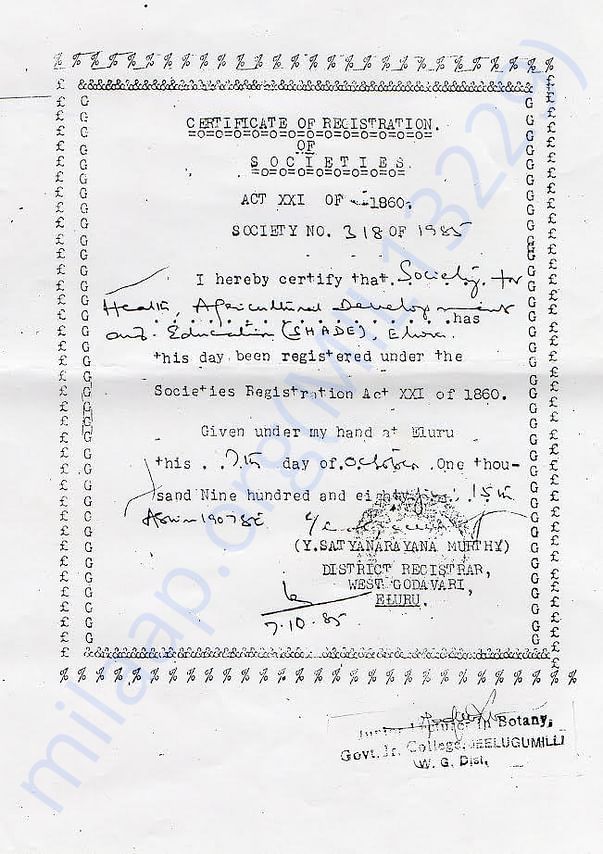 CERTIFICATE OF REGISTRATION.
OF
SOCIETIES.
ACT XXI OF 1860.
SOCIETY NO. 318 OF 1985
I hereby certify that Society for
Health, Agricultural Development
has
and Education (SHADE), Eluru.
this day been registered under the
Societies Registration Act XXI of 1860.
Given under my hand at Eluru
this 7th day of October One thou-
sand Nine hundred and eighty five 15th
1907SE
(Y.SATYANARAYANA MURTHY)
DISTRICT REGISTRAR,
WEST GODAVARI,
ELURU.
7.10.85
Junior Lecturer in Botany,
Govt. Jr. College, JEELUGUMILLI
W. G. Dist.
milaap.org(MIL13229)